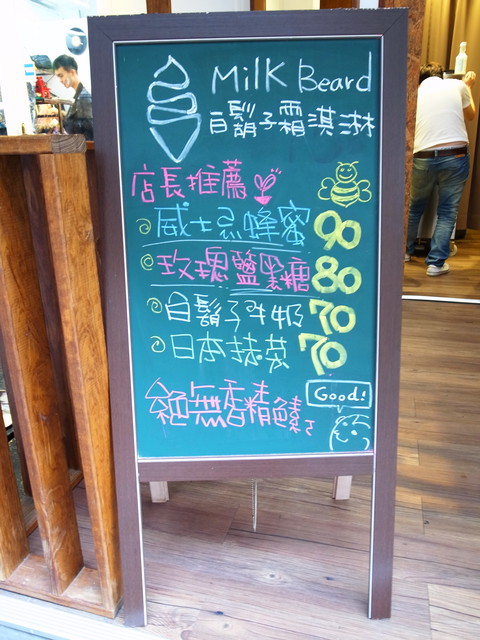 Milk Beard
白鬍子霜淇淋
店長推薦
威士忌蜂蜜 90
玫瑰鹽黑糖 80
白鬍子牛奶 70
日本抹茶 70
Good!
絕無香精